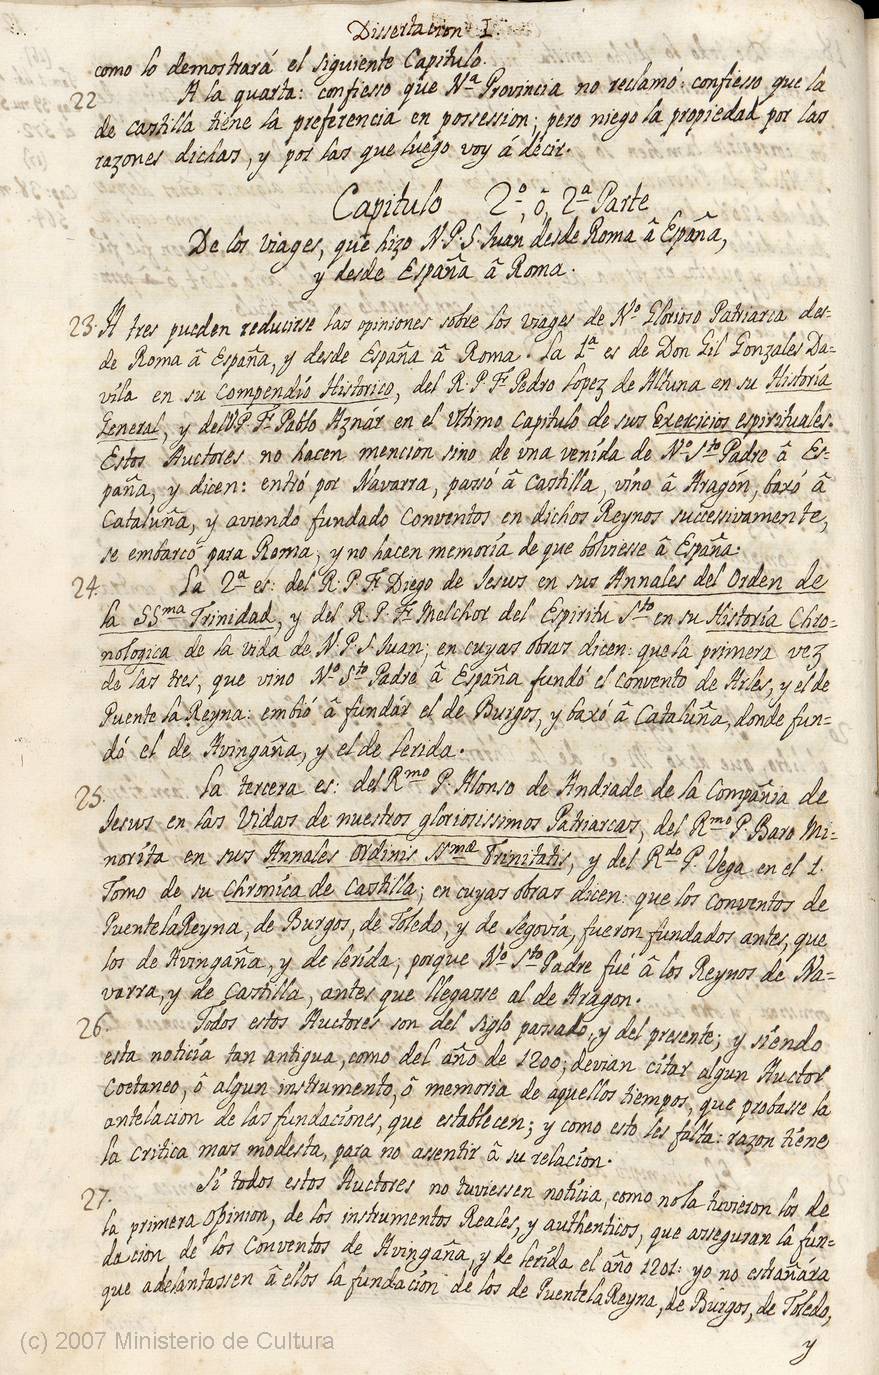 Dissertacion I.
como lo demostrará el siguiente Capitulo.
22 A la quarta: confiesso que Nª Provincia no reclamó: confiesso que la
de Castilla tiene la preferencia en possession; pero niego la propiedad por las
razones dichas, y por las que luego voy á decir.
Capitulo 2º, ô, 2ª Parte
De los viages, que hizo N.P.S. Juan desde Roma â España,
y desde España â Roma.
23. A tres pueden reducirse las opiniones sobre los viages de Nº Glorioso Patriarca des=
de Roma â España, y desde España â Roma. La 1ª es de Don Gil Gonzales Da=
vila en su Compendio Historico, del R.P.Fr. Pedro Lopez de Altuna en su Historia
General, y del V.P.Fr. Pablo Aznár en el Vltimo Capitulo de sus Exercicios espirituales.
Estos Auctores no hacen mencion sino de vna venida de Nº Sto Padre â Es=
paña, y dicen: entró por Navarra, passó â Castilla, vino â Aragón, baxó â
Cataluña, y aviendo fundado Conventos en dichos Reynos successivamente,
se embarcó para Roma, y no hacen memoria de que bolviesse â España.
24. La 2ª es: del R.P.Fr. Diego de Jesus en sus Annales del Orden de
la SSma Trinidad, y del R.P.Fr. Melchor del Espiritu Sto en su Historia Chro=
nologica de la vida de N.P.S. Juan; en cuyas obras dicen: que la primera vez
de las tres, que vino Nº Sto Padre â España fundó el convento de Arles, y el de
Puente la Reyna: embió â fundár el de Burgos, y baxó â Cataluña, donde fun=
dó el de Avingaña, y el de Lerida.
25. La tercera es: del Rmo P. Alonso de Andrade de la Compañia de
Jesus en las Vidas de nuestros gloriosissimos Patriarcas, del Rmo P. Baro Mi=
norita en sus Annales Ordinis SSmæ Trinitatis, y del Rdo P. Vega en el 1.
Tomo de su Chronica de Castilla; en cuyas obras dicen: que los Conventos de
PuentelaReyna, de Burgos, de Toledo, y de Segovia, fueron fundados antes, que
los de Avingaña, y de Lerida; porque Nº Sto Padre fué â los Reynos de Na=
varra, y de Castilla, antes que llegasse al de Aragon.
26. Todos estos Auctores son del siglo passado, y del presente; y siendo
esta noticia tan antigua, como del año de 1200; devian citar algun Auctor
Coetaneo, ô algun instrumento, ô memoria de aquellos tiempos, que probasse la
antelacion de las fundaciones, que establecen; y como esto les falta: razon tiene
la critica mas modesta, para no assentir â su relacion.
27. Si todos estos Auctores no tuviessen noticia, como no la tuvieron los de
la primera Opinion, de los instrumentos Reales, y authenticos, que asseguran la fun=
dacion de los Conventos de Avingaña, y de Lerida el año 1201: yo no estrañára
que adelantassen â ellos la fundacion de los de PuentelaReyna, de Burgos, de Toledo,
y
(c) 2007 Ministerio de Cultura